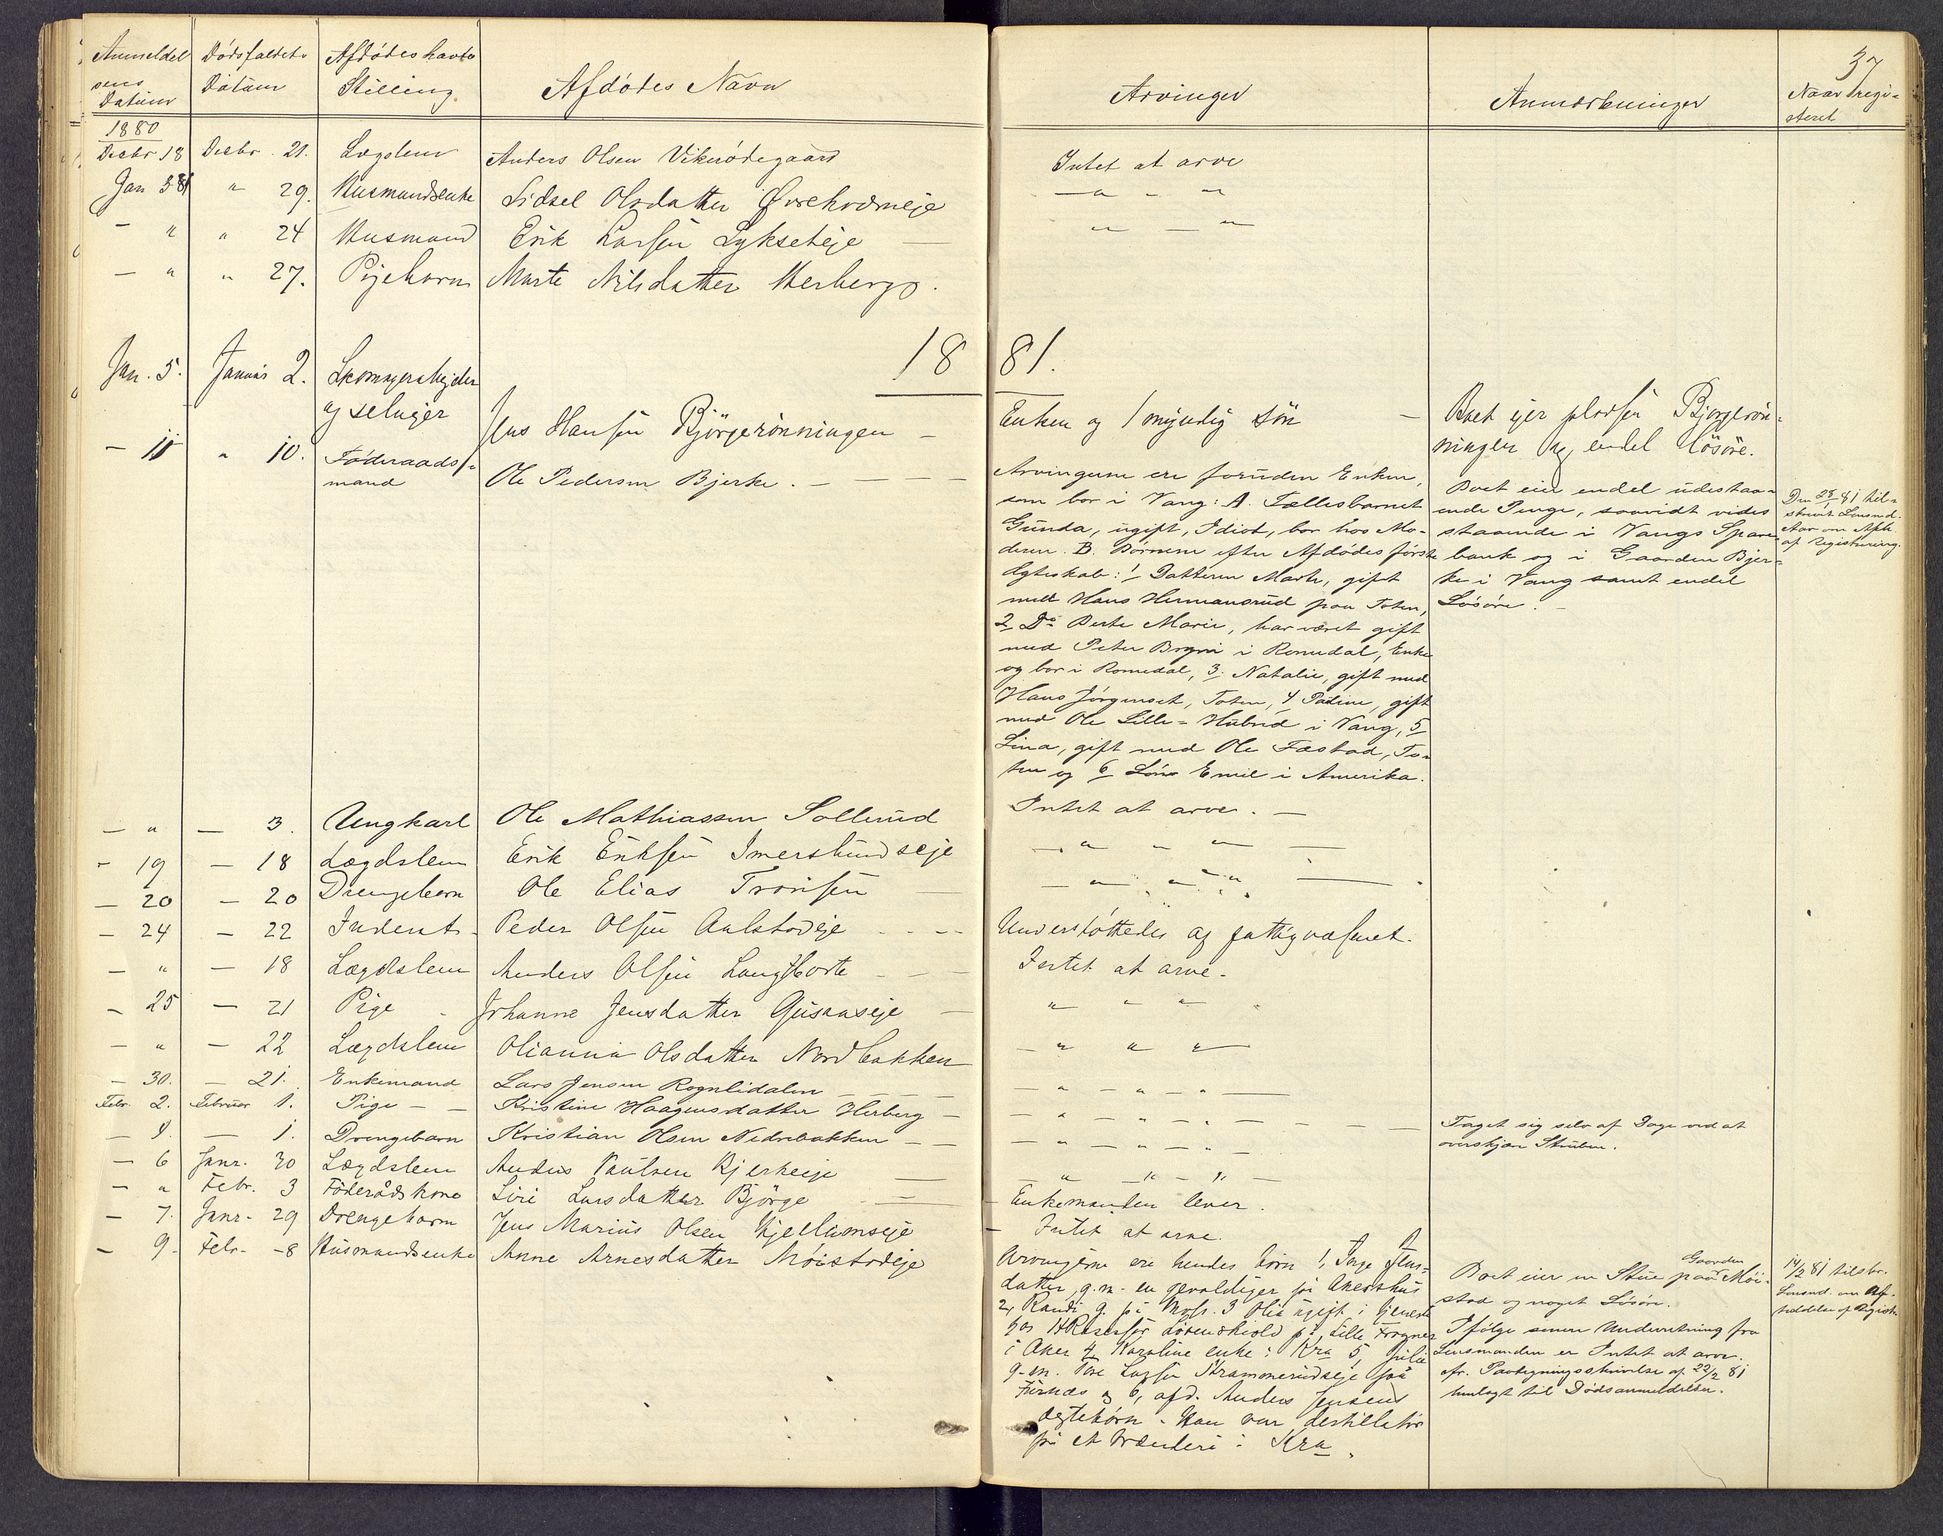 37
Anmeldel Dødsfaldets Afdødes havte
sens Datum Stilling Afdødes Navn Arvinger Anmærkninger Naar regi-
Datum steret
1880
Decbr 18 Decbr. 21. Lægslem Anders Olsen Vikerødegaard Intet at arve
Jan 3 81 " 29. Husmandsenke Sidsel Olsdatter Øvrekværneje — " - "
- " " 24 Husmand Erik Larsen Lykseteje " — "
— " " 27. Pigebarn Marte Nilsdatter Herberg.
1881.
Jan. 5. Januar 2. Skomagerarbejder
og selvejer Jens Hansen Bjørgerønningen — Enken og 1 myndig søn — Boet ejer pladsen Bjørgerøn-
ningen og endel Løsøre.
— 11 " 10. Føderaads-
mand Ole Pedersen Bjerke. — — — —
Arvingerne ere foruden Enken,
som bor i Vang: A. Fællesbarnet
Gunda, ugift, Idiot, bor hos Mo-
deren. B. Børnene efter Afdødes første
Egteskab: 1 Datteren Marte, gift
med Hans Hermansrud paa Toten,
2 Do Berte Marie, har været gift
med Peter Bryni i Romedal, Enke
og bor i Romedal, 3. Natalie, gift med
Hans Jørgenset, Toten, 4 Paline, gift
med Ole Lille-Hubred i Vang, 5
Lina, gift med Ole Fæstad, To-
ten og 6 Søns Emil i Amerika.
Boet eier endel udestaa-
ende Penge, saavidt vides
staaende i Vangs Spare-
bank og i Gaarden Bjer-
ke i Vang samt endel
Løsøre. —
Den 28/1 81 til-
skrevet Lensmd.
af Registrering.
— " — 3. Ungkarl Ole Mathiassen Sollerud Intet at arve. —
- 19 — 18 Lægdslem Erik Eriksen Imerslundseje — " — " —
— 20 — 20 Drengebarn Ole Elias Tronsen — — " - " - " —
— 24 — 22 Inderst - Peder Olsen Aalstadeje - - - - Understøttedes af fattigvæsenet.
— " — 18 Lægdslem Anders Olsen Langthorte - - - Intet at arve -
— 25 — 21 Pige - Johanne Jensdatter Gusaaseje — " " "
— " — 22 Lægdslem Olianna Olsdatter Nordbakken — " " "
— 30. — 21. Enkemand Lars Jensen Rognlidalen — " - " - "
Febr. 2. Februar 1. Pige — — Kristine Haagensdatter Herberg — — " — " - " - — — —
— 1. Drengebarn Kristian Olsen Nedrebakken — — — " — " - " - —
Taget sig selv af Dage ved at
overskjære Struben.
— 6 Janr. 30 Lægdslem Anders Paulsen Bjerkeeje — — " - " - " —
— " Febr. 3 Føderådskone Siri Larsdatter Bjørge — Enkemanden lever.
— 7. Janr - 29 Drengebarn Jens Marius Olsen Kjellumseje — Intet at arve.
— 9. Febr. - 8 Husmandsenke Anne Arnesdatter Møistadeje
Arvingerne ere hendes børn 1, Inge Jens-
datter, g. m. en gevaldiger på Akershus
2, Randi g. på Moss. 3 Olia ugift i tjeneste
hos Løvenskiold på Lille Frogner
i Aker 4 Karoline enke i Kra 5, Julie
g. m. Tore Larsen Strammerudseje på
Furnæs og 6, afd. Anders Jensens
ægtebørn - Han var destillatør
på et brænderi i Kra.
Gaarden
Boet eier en Stue paa Møi-
stad og noget Løsøre.
Ifølge senere Underretning fra
Lensmanden er Intet at arve
cfr. Paategningsskrivelse af 22/2 81
henlagt til Dødsanmeldelser.
14/2 81 tilskr.
Lensmd. om Af-
holdelse af Registr.